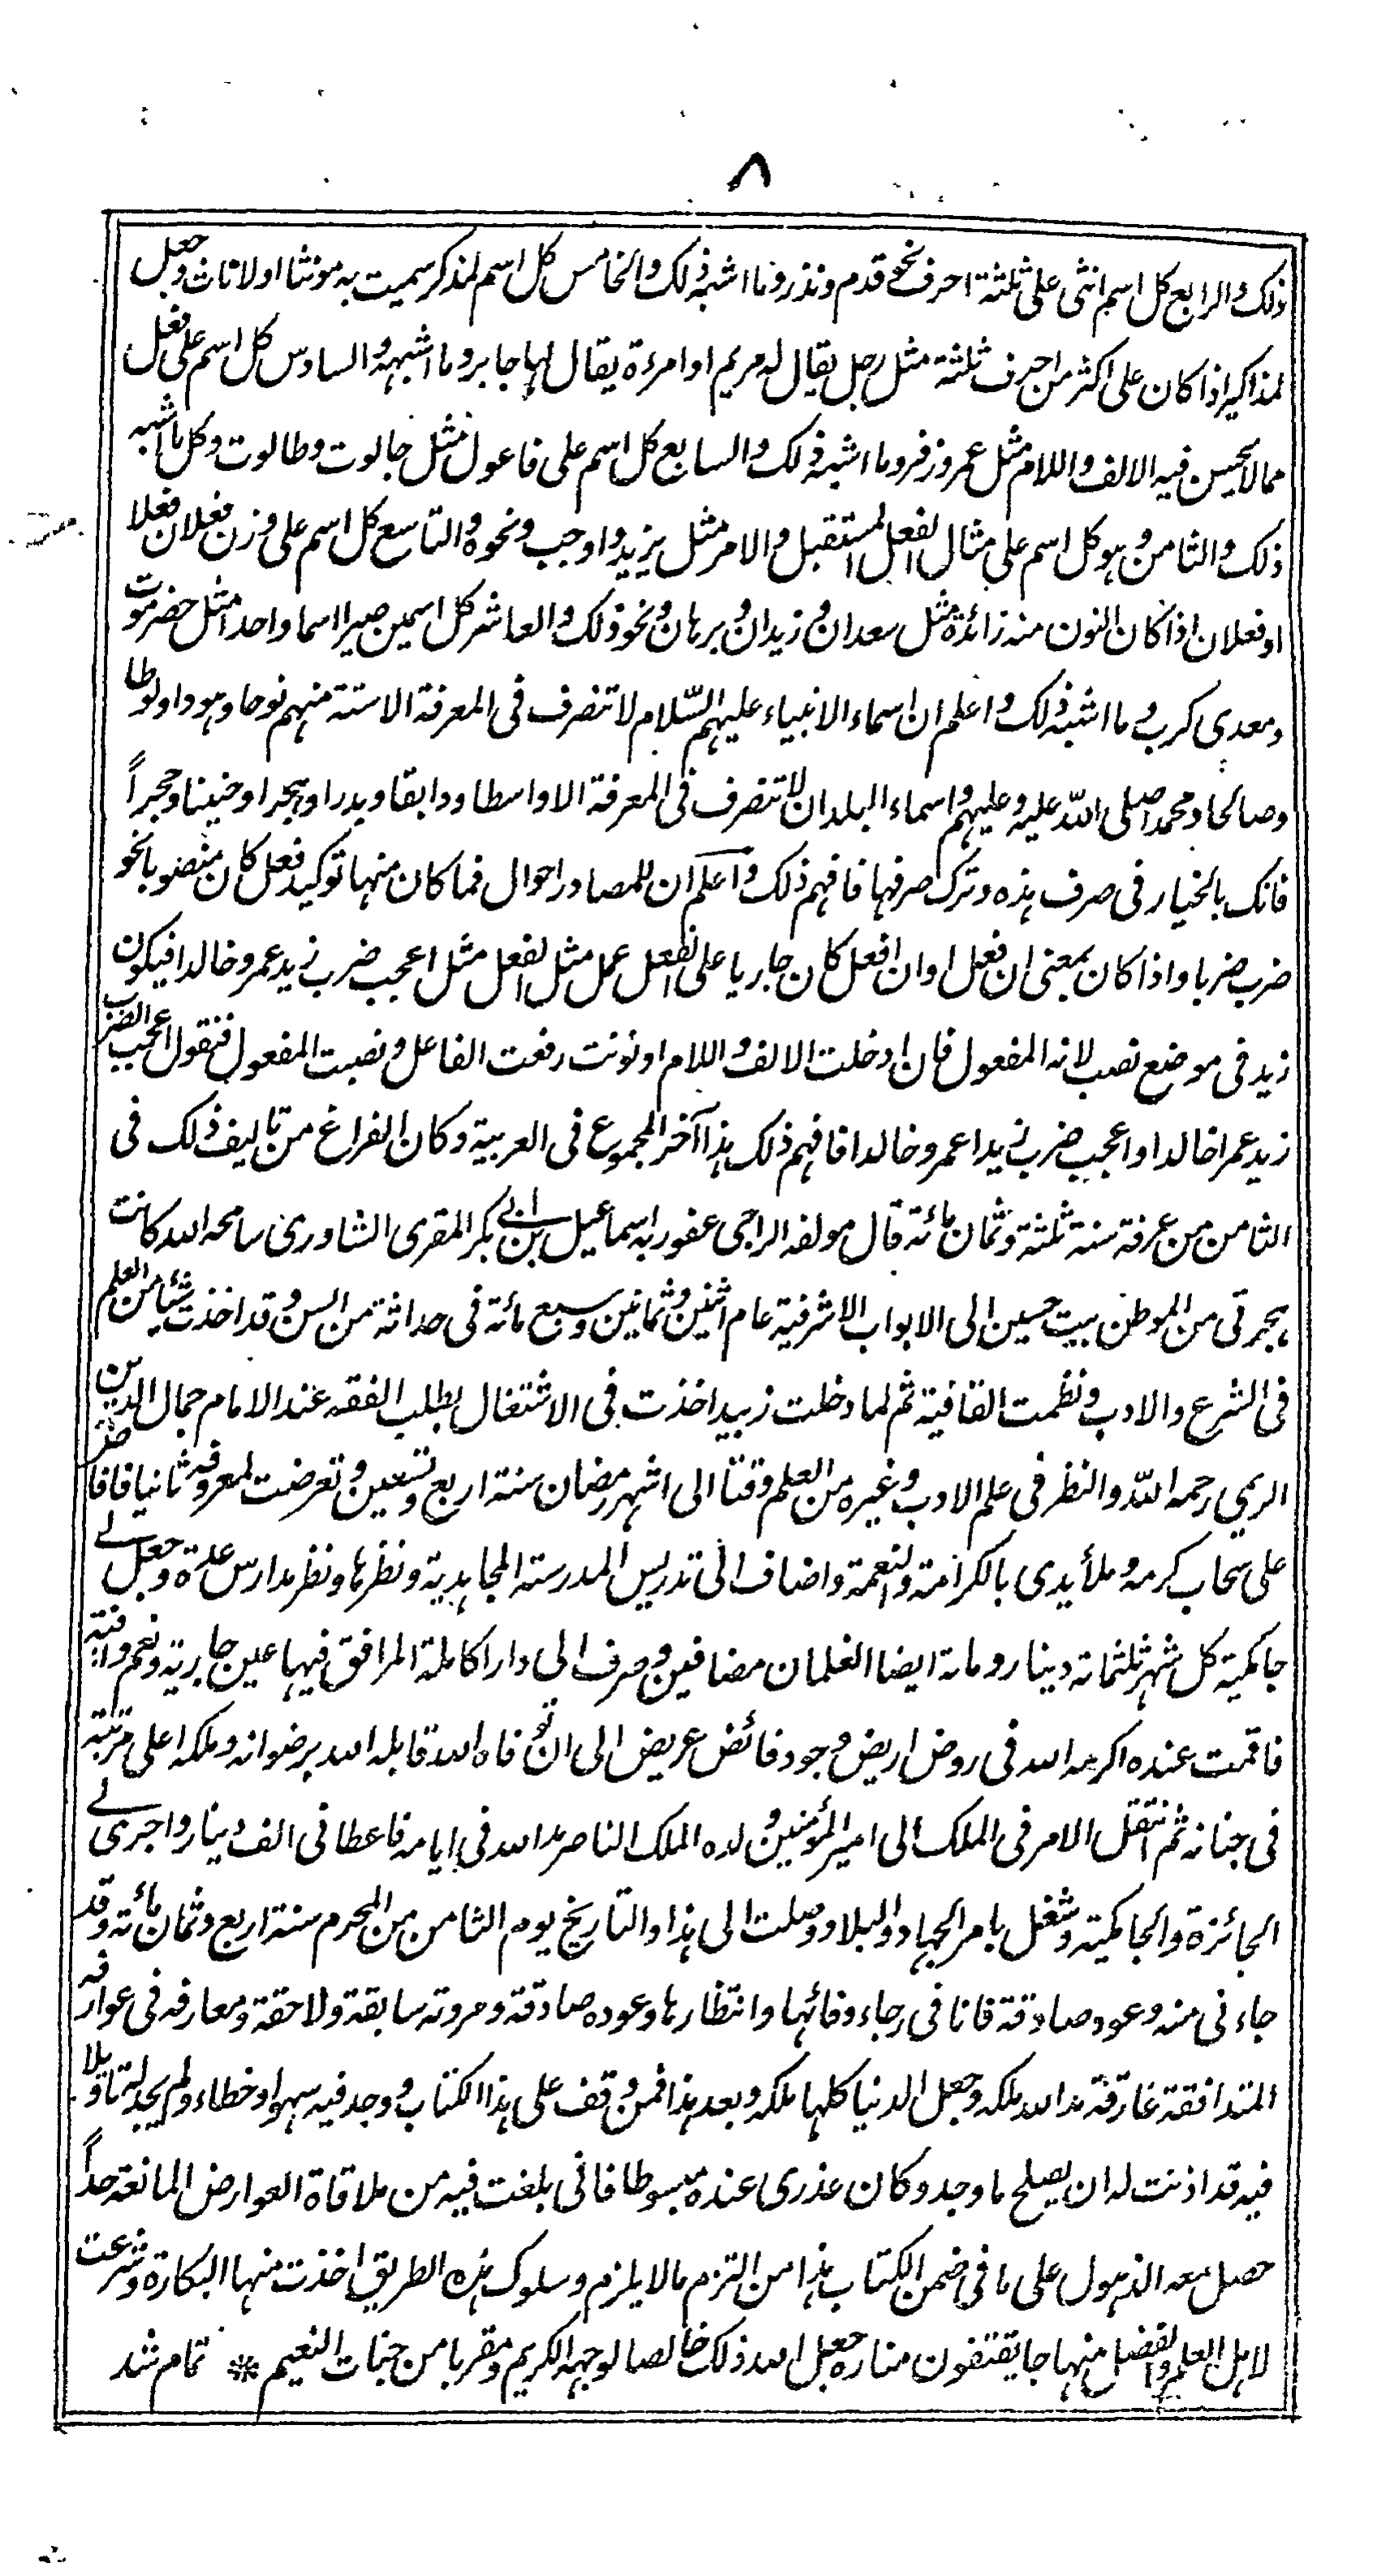 ٨
ذلك والرابع كل اسم انثى على ثلثة احرف نحو قدم ونذر وما اشبه ذلك والخامس كل اسم لمذكر سميت به مونثا او لاناث وجعل
لمذاكير اذا كان على اكثر من احرف ثلثة مثل رجل يقال له مريم او امرءة يقال لها جابر وما اشبهه والسادس كل اسم على فعل
ممالا يحسن فيه الالف واللام مثل عمر وزفر وما اشبه ذلك والسابع كل اسم على فاعول مثل جالوت وطالوت وكل ما اشبه
ذلك والثامن وهو كل اسم على مثال الفعل المستقبل والامر مثل يزيد واوجب ونحوه والتاسع كل اسم على وزن فعلان فعلا
او فعلان اذا كان النون منه زائدة مثل سعدان وزيدان وبرهان ونحو ذلك والعاشر كل اسمين صيرا اسما واحدا مثل حضرموت
ومعدى كرب وما اشبه ذلك واعلم ان اسماء الانبياء عليهم السّلام لا تنصرف فى المعرفة الا ستة منهم نوحا وهودا ولوطا
وصالحا ومحمدا صلى اللّه عليه وعليهم واسماء البلدان لا تنصرف فى المعرفة الا واسطا ودابقا وبدرا وهجرا وحنينا وحجراً
فانك بالخيار فى صرف هذه وترك صرفها فافهم ذلك واعلم ان للمصادر احوال فما كان منها توكيد فعل كان منصوبا نحو
ضرب ضربا واذا كان بمعنى ان فعل او ان افعل كان جاريا على الفعل عمل مثل الفعل مثل اعجب ضرب زيد عمرو خالدا فيكون
زيد فى موضع نصب لانه المفعول فان ادخلت الالف واللام او نونت رفعت الفاعل ونصبت المفعول فتقول اعجب الضرب
زيد عمرا خالدا واعجب ضرب زيدا عمرو خالدا فافهم ذلك هذا آخر المجموع فى العربية وكان الفراغ من تاليف ذلك فى
الثامن من عرفة سنة ثلثة وثمان مائة قال مولفه الراجى عفو ربه اسماعيل بن ابى بكر المقرى الشاورى سامحه الله كانت
هجرتى من الموطن بيت حسين الى الابواب الاشرفية عام اثنين وثمانين وسبع مائة فى حداثة من السن وقد اخذت شيئا من العلم
فى الشرع والادب ونظمت القافية ثم لما دخلت زبيد اخذت فى الاشتغال بطلب الفقه عند الامام جمال الدين
الريمي رحمه اللّه والنظر فى علم الادب وغيره من العلم وقتا الى اشهر رمضان سنة اربع وتسعين وتعرضت لمعروفه ثانيا فافاض
على سحاب كرمه وملأ يدى بالكرامة والنعمة واضاف الى تدريس المدرسة المجاهدية ونظرها ونظر مدارس عدة وجعل لى
جامكية كل شهر ثلثمائة دينار ومائة ايضا الغلمان مضافين وصرف الى دارا كاملة المرافق فيها عين جارية ونعم وافية
فاقمت عنده اكرمه الله فى روض اريض وجود فائض عريض الى ان توفاه الله قابله الله برضوانه وملكه اعلى مرتبة
فى جنانه ثم انتقل الامر فى الملك الى امير المؤمنين ولده الملك الناصر مد الله فى ايامه فاعطانى الف دينار واجرى لى
الجائزة والجامكية وشغل بامر الجهاد والبلاد ووصلت الى هذا والتاريخ يوم الثامن من المحرم سنة اربع وثمان مائة وقد
جاءنى منه وعود صادقة فانا فى رجاء وفائها وانتظارها وعوده صادقة ومروته سابقة ولاحقة ومعارفه فى عوارفه
المتدافقة غارقة مد الله ملكه وجعل الدنيا كلها ملكه وبعد هذا فمن وقف على هذا الكتاب ووجد فيه سهوا وخطاء ولم يجد له تاويلا
فيه قد اذنت له ان يصلح ما وجد وكان عذرى عنده مبسوطا فانى بلغت فيه من ملاقاة العوارض المانعة حداً
حصل معه الذهول على ما فى ضمن الكتاب هذا من التزم مالا يلزم وسلوك هذه الطريق اخذت منها البكارة وشرعت
لاهل العلم والفضل منهاجا يقتفون مناره جعل الله ذلك خالصا لوجهه الكريم ومقربا من جنات النعيم * تمام شد